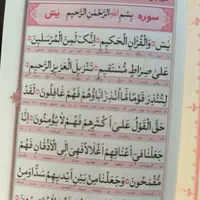 سورة بِسْمِ اللَّهِ الرَّحْمٰنِ الرَّحِيمِ يٰسٓ
يٰسٓ وَالْقُرْاٰنِ الْحَكِيمِ اِنَّكَ لَمِنَ الْمُرْسَلِينَ
عَلىٰ صِرَاطٍ مُسْتَقِيمٍ تَنْزِيلَ الْعَزِيزِ الرَّحِيمِ
لِتُنْذِرَ قَوْمًا مَا اُنْذِرَ اٰبَاؤُهُمْ فَهُمْ غَافِلُونَ لَقَدْ
حَقَّ الْقَوْلُ عَلىٰ اَكْثَرِهِمْ فَهُمْ لَا يُؤْمِنُونَ اِنَّا
جَعَلْنَا فِي اَعْنَاقِهِمْ اَغْلَالًا فَهِيَ اِلَى الْاَذْقَانِ فَهُمْ
مُقْمَحُونَ وَجَعَلْنَا مِنْ بَيْنِ اَيْدِيهِمْ سَدًّا وَمِنْ